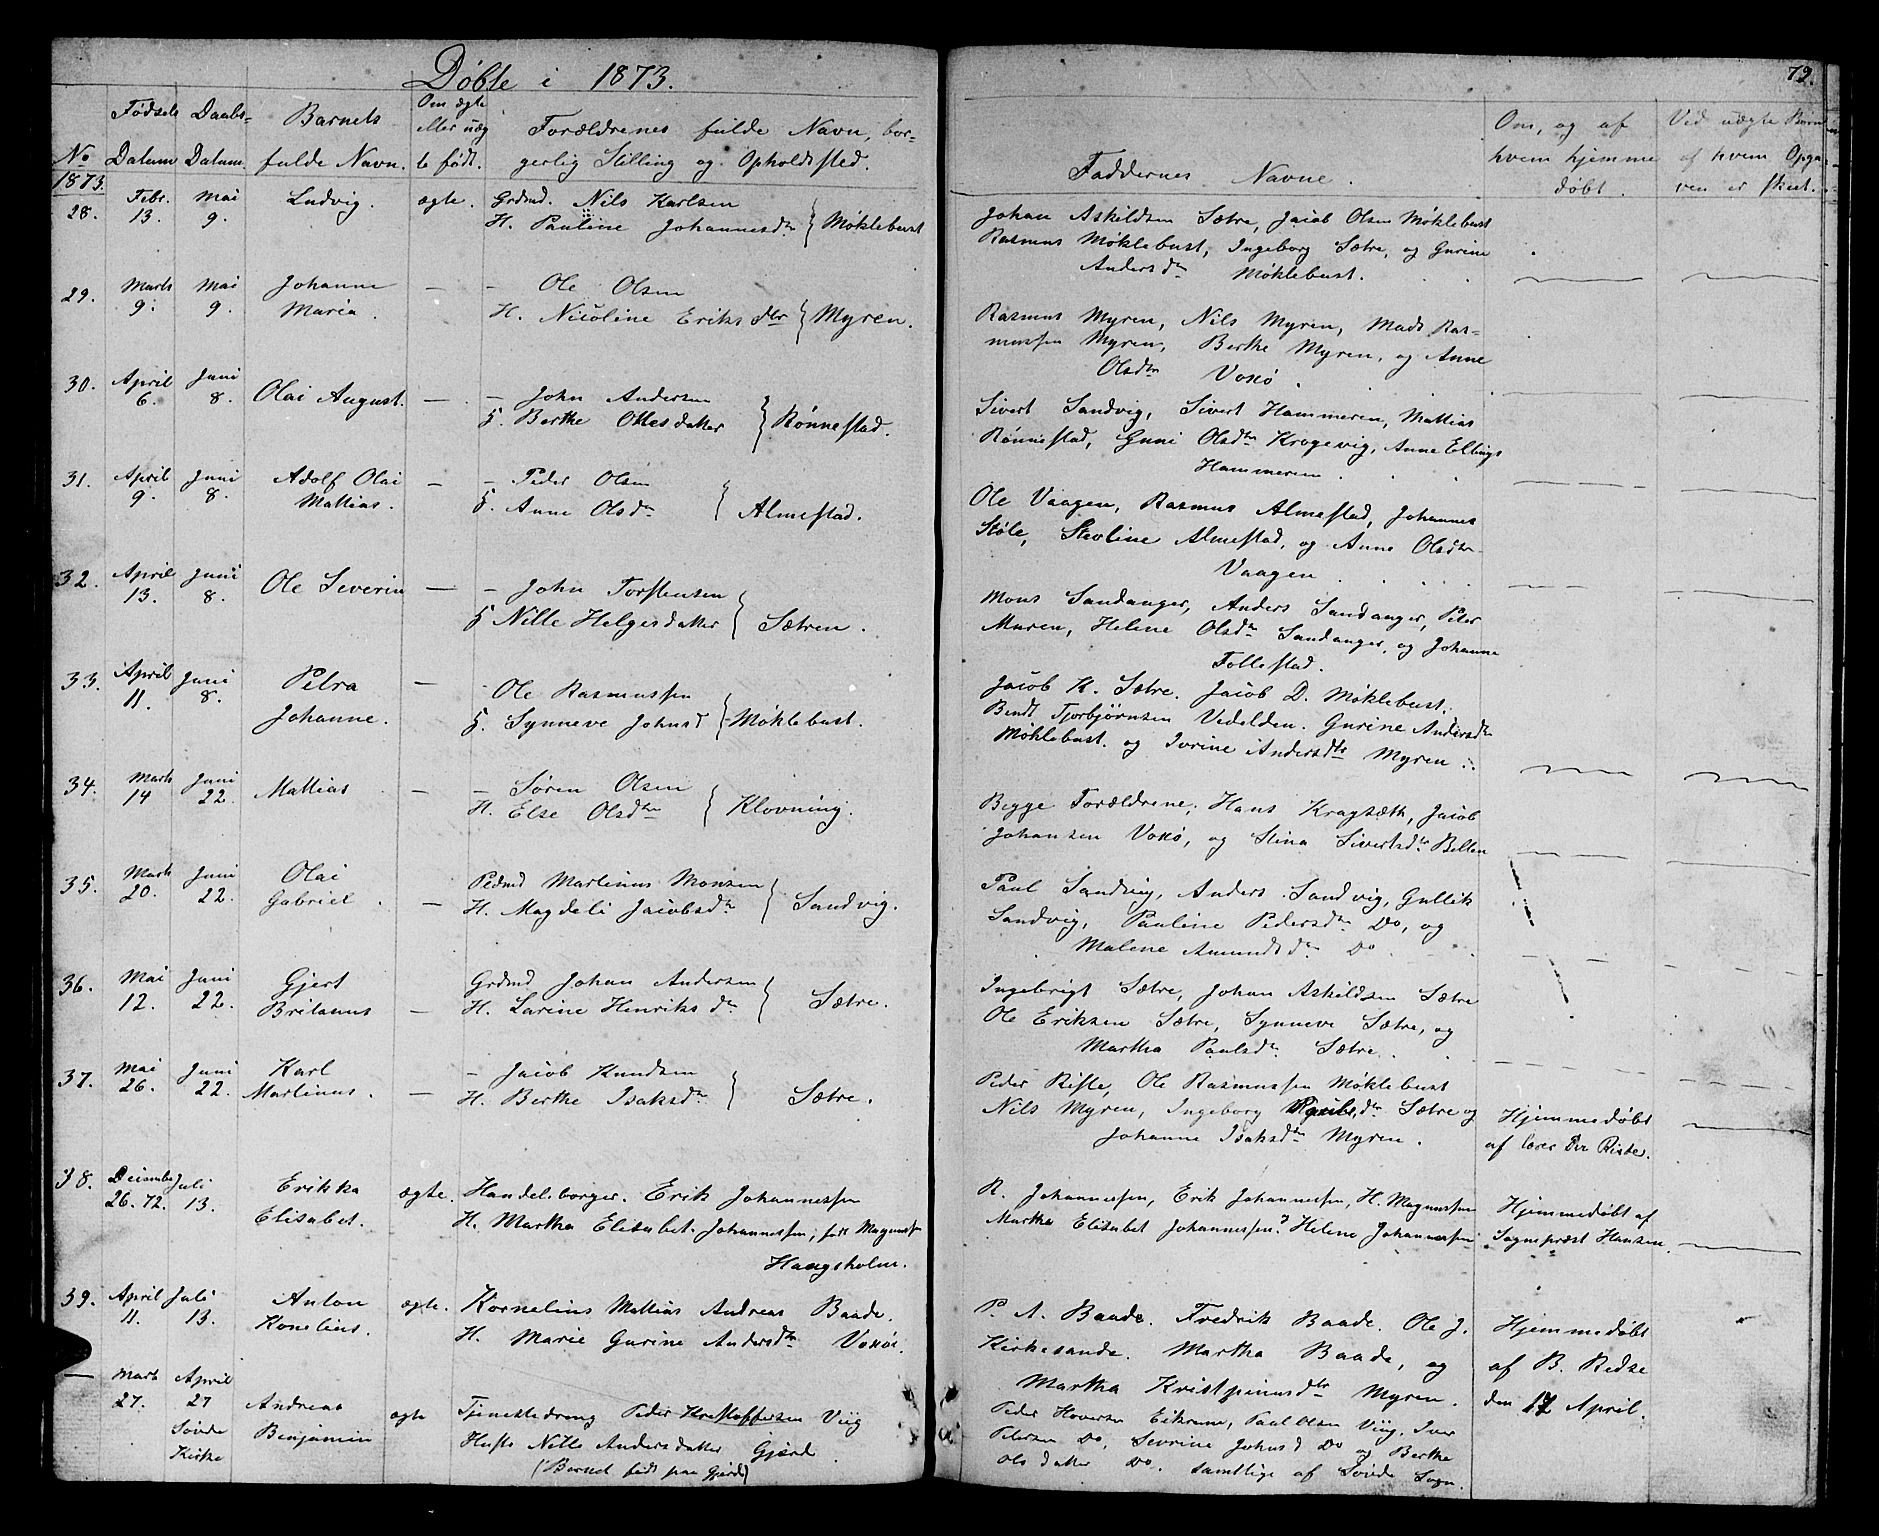 Døbte i 1873.
79.
No
Fødsels Datum
Daabs- Datum.
Barnets fulde Navn.
Om ægte eller uæg te født.
Forældrenes fulde Navn, bor-
gerlig Stilling og Opholdssted.
Faddernes Navne.
Om, og af hvem hjemme døbt.
Ved uægte Børn af hvem Opga ven er skeet.
1873.
28. Febr. 13. Mai 9. Ludvig. ægte. Grdmd. Nils Karlsen
H. Pauline Johannesdtr } Møklebust
Johan Askildsen Sætre, Jacob Olsen Møklebust
Rasmus Møklebust, Ingeborg Sætre, og Gurine
Andersdtr Møklebust.
29. Marts 9. Mai 9. Johanne Maria. — — Ole Olsen
H. Nicoline Eriksdtr } Myren.
Rasmus Myren, Nils Myren, Mads Ras-
mussen Myren, Berthe Myren, og Anne
Olsdtr Voxø.
30. April 6. Juni 8. Olai August. — — John Andersen
H. Berthe Ottesdatter } Rønnestad.
Sivert Sandvig, Sivert Hammeren, Mattias
Rønnestad, Guni Olsdtr Krogevig, Anne Ellings
Hammeren.
31. April 9. Juni 8. Adolf Olai Mattias. — — Peder Olsen
H. Anne Olsdtr } Almestad.
Ole Vaagen, Rasmus Almestad, Johannes
Støle, Stevline Almestad, og Anne Olsdtr
Vaagen
32. April 13. Juni 8. Ole Severin — — John Torstensen
H Nille Helgesdatter } Sætren.
Mons Sandanger, Anders Sandanger, Peter
Muren, Helene Olsdtr Sandanger, og Johanne
Follestad.
33. April 11. Juni 8. Petra Johanne. — - Ole Rasmussen
H. Synneve Johnsd } Møklebust.
Jacob K. Sætre. Jacob D. Møklebust.
Bendt Torbjørnsen Vedelden. Gurine Andersdtr
Møklebust. og Ivrine Andersdtr Myren.
34. Marts 14 Juni 22. Mattias — — Søren Olsen
H. Else Olsdtr } Klovning.
Begge Forældrene, Hans Kragsæth, Jacob
Johansen Voxø, og Stina Sivertsdtr Bellen
35. Marts 20. Juni 22. Olai Gabriel. — Pldmd Martinus Monsen
H. Magdeli Jacobsdtr } Sandvig.
Paul Sandvig, Anders Sandvig, Gullik
Sandvig, Pauline Pedersdtr Do, og
Malene Amundsdtr Do
36. Mai 12. Juni 22. Gjert Britanus — Grdmd Johan Andersen
H. Larine Henriksdtr } Sætre.
Ingebrigt Sætre, Johan Askildsen Sætre
Ole Eriksen Sætre, Synneve Sætre, og
Martha Paulsdtr Sætre.
37. Mai 26. Juni 22. Karl Martinus. — — Jacob Knudsen
H. Berthe Isaksdtr } Sætre.
Peder Riste, Ole Rasmussen Møklebust
Nils Myren, Ingeborg Paulsdtr Sætre og
Johanne Isaksdtr Myren.
Hjemmedøbt
af lærer Riste.
38. Decembr 26. 72. Juli 13. Erikka Elisabet. ægte. Handelsborger. Erik Johannessen
H. Martha Elisabet Johannessen, født Magnuss
Haugsholm.
R. Johannessen, Erik Johannessen, H. Magnussen
Martha Elisabet Johannessen, Helene Johannessen
Hjemmedøbt af
Sognepræst Hansen.
39. April 11. Juli 13. Anton Konelius. ægte. Kornelius Mattias Andreas Baade.
H. Marie Gurine Andersdtr Voxø.
P. A. Baade. Fredrik Baade. Ole J.
Kirkesande. Martha Baade, og
Martha Kristpinusdtr Myren.
Hjemmedøbt
af B. Redse
den 17 April.
— Marts 27. April 27 Sovde Kirke Andreas Benjamin ægte Tjenestedreng Peder Kristoffersen Viig
Hustr Nille Andersdatter Gjærd.
(Barnet født paa Gjærd)
Peder Hoversen Eikrem, Paul Olsen Viig, Iver
Petersen Do, Sevrine Johnsd Do og Berthe
Olsdatter Do. samtlige af Sovde Sogn.